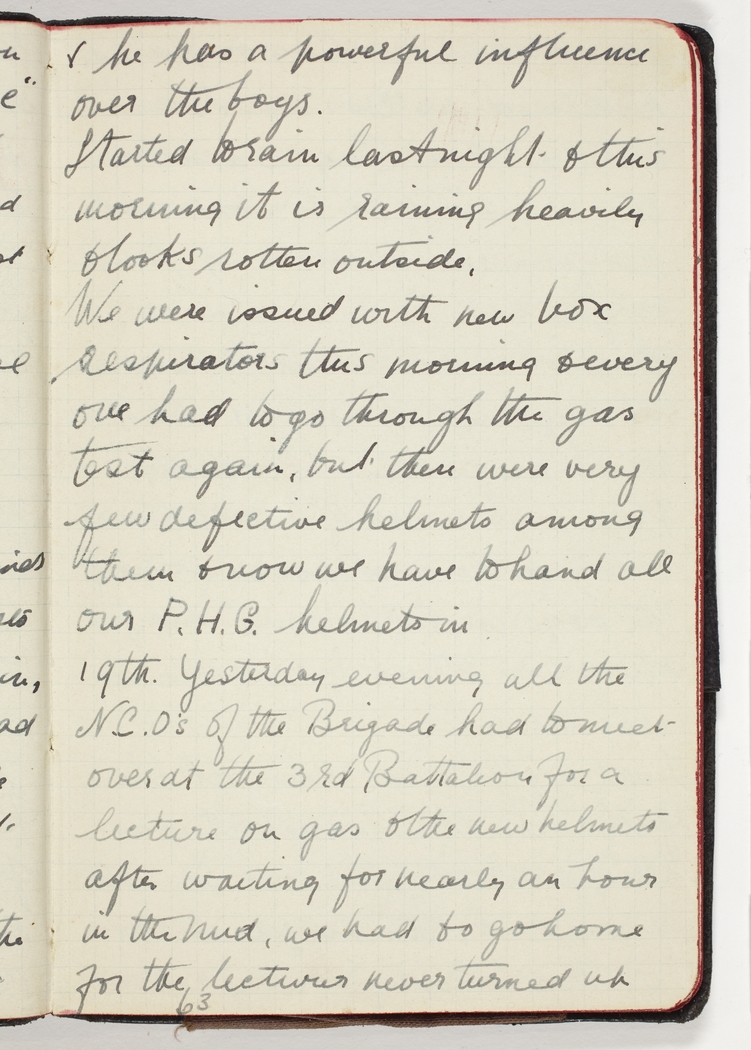 & he has a powerful influence
over the boys.
Started to rain last night & this
morning it is raining heavily
& looks rotten outside.
We were issued with new box
respirators this morning & every
one had to go through the gas
test again, but there were very
few defective helmets among
them & now we have to hand all
our P.H.G. helmets in
19th. Yesterday evening all the
N.C.O's of the Brigade had to meet
over at the 3rd Battalion for a
lecture on gas & the new helmets
after waiting for nearly an hour
in the mud, we had to go home
for the lecturer never turned up
63